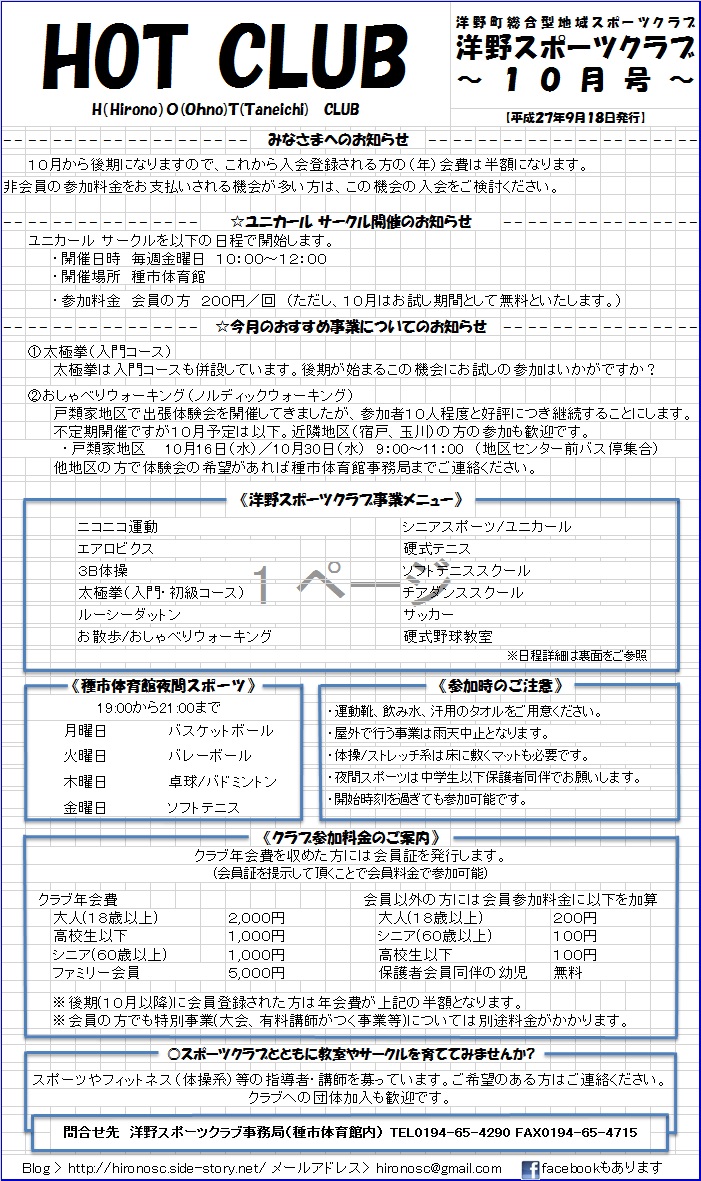 HOT CLUB
H(Hirono) O(Ohno)T(Taneichi) CLUB
洋野町総合型地域スポーツクラブ
洋野スポーツクラブ
～ 10月号 ～
【平成27年9月18日発行】
みなさまへのお知らせ
10月から後期になりますので、これから入会登録される方の（年）会費は半額になります。
非会員の参加料金をお支払いされる機会が多い方は、この機会の入会をご検討ください。
☆ユニカール サークル開催のお知らせ
ユニカール サークルを以下の日程で開始します。
・開催日時 毎週金曜日 10：00～12：00
・開催場所 種市体育館
・参加料金 会員の方 200円／回 （ただし、10月はお試し期間として無料といたします。）
☆今月のおすすめ事業についてのお知らせ
①太極拳（入門コース）
太極拳は入門コースも併設しています。後期が始まるこの機会にお試しの参加はいかがですか？
②おしゃべりウォーキング（ノルディックウォーキング）
戸類家地区で出張体験会を開催してきましたが、参加者10人程度と好評につき継続することにします。
不定期開催ですが10月予定は以下。近隣地区（宿戸、玉川）の方の参加も歓迎です。
・戸類家地区 10月16日（水）／10月30日（水） 9：00～11：00 （地区センター前バス停集合）
他地区の方で体験会の希望があれば種市体育館事務局までご連絡ください。
《洋野スポーツクラブ事業メニュー》
ニコニコ運動 シニアスポーツ/ユニカール
エアロビクス 硬式テニス
3B体操 ソフトテニススクール
太極拳（入門・初級コース） チアダンススクール
ルーシーダットン サッカー
お散歩/おしゃべりウォーキング 硬式野球教室
※日程詳細は裏面をご参照
1 ページ
《種市体育館夜間スポーツ》
19:00から21:00まで
月曜日 バスケットボール
火曜日 バレーボール
木曜日 卓球/バドミントン
金曜日 ソフトテニス
《参加時のご注意》
・運動靴、飲み水、汗用のタオルをご用意ください。
・屋外で行う事業は雨天中止となります。
・体操/ストレッチ系は床に敷くマットも必要です。
・夜間スポーツは中学生以下保護者同伴でお願いします。
・開始時刻を過ぎても参加可能です。
《クラブ参加料金のご案内》
クラブ年会費を収めた方には会員証を発行します。
(会員証を提示して頂くことで会員料金で参加可能)
クラブ年会費 会員以外の方には会員参加料金に以下を加算
大人(18歳以上) 2,000円 大人(18歳以上) 200円
高校生以下 1,000円 シニア(60歳以上) 100円
シニア(60歳以上) 1,000円 高校生以下 100円
ファミリー会員 5,000円 保護者会員同伴の幼児 無料
※後期(10月以降)に会員登録された方は年会費が上記の半額となります。
※会員の方でも特別事業(大会、有料講師がつく事業等)については別途料金がかかります。
○スポーツクラブとともに教室やサークルを育ててみませんか？
スポーツやフィットネス(体操系)等の指導者・講師を募っています。ご希望のある方はご連絡ください。
クラブへの団体加入も歓迎です。
問合せ先 洋野スポーツクラブ事務局（種市体育館内） TEL0194-65-4290 FAX0194-65-4715
Blog > http://hironosc.side-story.net/ メールアドレス> hironosc@gmail.com facebookもあります